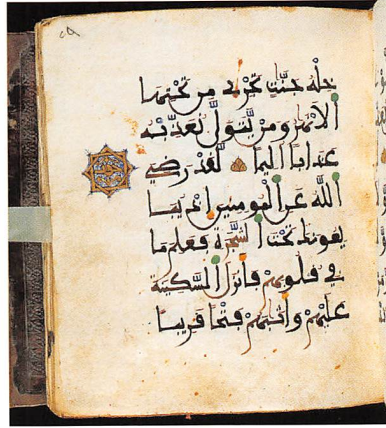 خله جنت تجري من تحتها
الانهر ومن يتول نعذبه
عذابا اليما لقد رضي
الله عن المومنين اذ يبا
يعونك تحت الشجرة فعلم ما
في قلوبهم فانزل السكينة
عليهم واثبهم فتحا قريبا